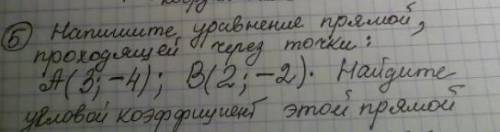 ⑤ Напишите уравнение прямой,
проходящей через точки:
А(3;-4); В(2;-2). Найдите
угловой коэффициент этой прямой